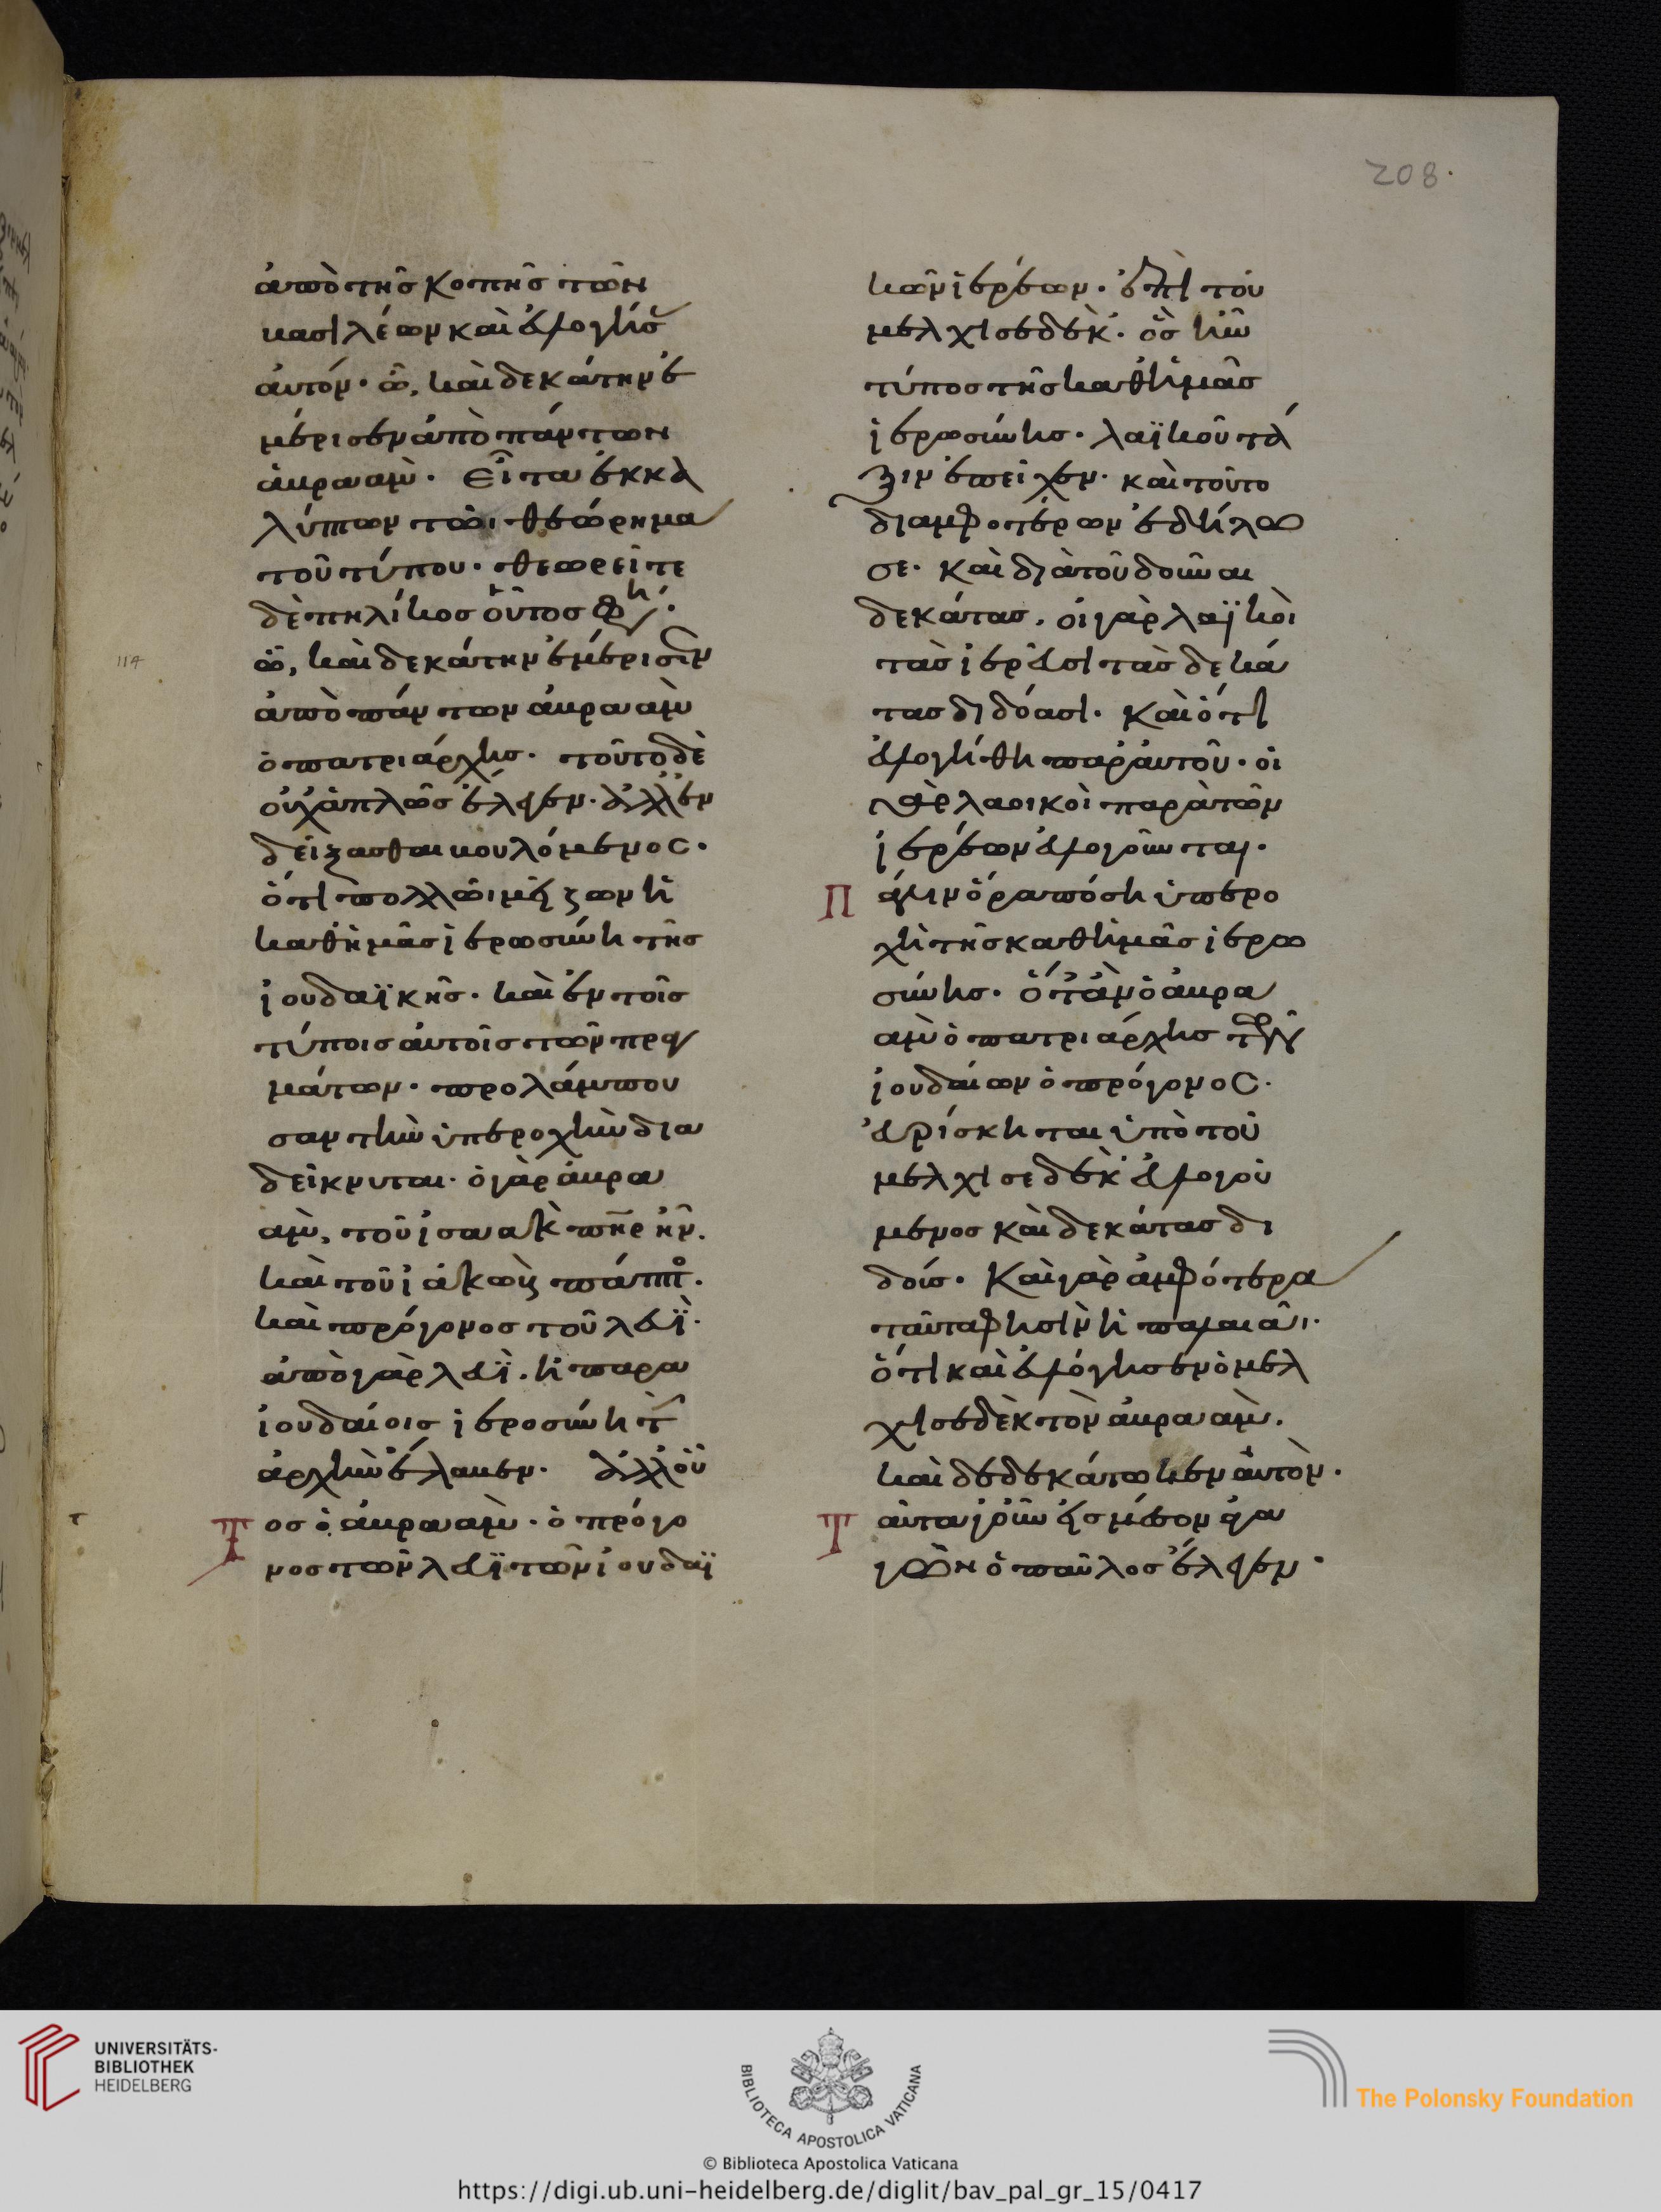 208.
ἀπὸ τῆς κοπῆς τῶν
βασιλέων καὶ εὐλογήσ
αὐτόν· ὧ, καὶ δεκάτην ἐ
μέρισεν ἀπὸ πάντων
ἀβρααμ· Εἶτα ἐκκα
λύπτων τῶι θεώρημα
τοῦ τύπου· θεωρεῖτε
δὲ πηλίκος οὗτος φη·
114
ὧ, καὶ δεκάτην ἐμέρισεν
ἀπὸ πάντων ἀβρααμ
ὁ πατριάρχης· τοῦτο δὲ
οὐχ ἁπλῶς ἔλεγεν· ἀλλ' ἐν
δείξασθαι βουλόμενος·
ὅτι πολλῶι μείζων ἡ
καθ' ἡμᾶς ἱερωσύνη τῆς
ἰουδαϊκῆς· καὶ ἐν τοῖς
τύποις αὐτοῖς τῶν πραγ
μάτων· προλάμπου
σαν τὴν ὑπεροχὴν δια
δείκνυται· ὁ γὰρ ἀβρα
αμ, τοῦ ἰσαακ πηρ ἦν·
καὶ τοῦ ἰακωβ πάππο·
καὶ πρόγονος τοῦ λευΐ·
ἀπὸ γὰρ λευΐ· ἡ παρα
ἰουδαίοις ἱεροσύνη τ
ἀρχὴν ἔλαβεν· ἀλλ' οὗ
Τ ος ὁ ἀβρααμ· ὁ πρόγο
νος τῶν λευϊτῶν ἰουδαϊ
κῶν ἱερέων· ἐπὶ τοῦ
μελχισεδὲκ· ὃς ἦν
τύπος τῆς καθ' ἡμᾶς
ἱερωσύνης· λαϊκοῦ τά
ξιν ἐπεῖχεν· καὶ τοῦτο
δι' ἀμφοτέρων ἐδήλω
σε· καὶ διὰ τοῦ δοῦναι
δεκάτας· οἱ γὰρ λαϊκοὶ
τὰς ἱερεῦσι τὰς δεκά
τας διδόασι· καὶ ὅτι
εὐλογήθη παρ' αὐτοῦ· οἱ
γὰρ λαοικοὶ παρὰ τῶν
ἱερέων εὐλογοῦνται·
Π άλιν ὅρα πόση ὑπερο
χὴ τῆς καθ' ἡμᾶς ἱερω
σύνης· ὅταν ὁ ἀβρα
αμ ὁ πατριάρχης τῶν
ἰουδαίων ὁ πρόγονος·
εὑρίσκηται ὑπὸ τοῦ
μελχισεδὲκ εὐλογού
μενος καὶ δεκάτας δι
δούς· Καὶ γὰρ ἀμφότερα
ταῦτα φησὶν ἡ παλαιᾶι·
ὅτι καὶ εὐλόγησεν ὁ μελ
χισεδὲκ τὸν ἀβρααμ·
καὶ δεδεκάτωκεν αὐτὸν·
Τ αῦτα γοῦν εἰς μέσον ἀγα
γὼν ὁ παῦλος ἔλεγεν·
UNIVERSITÄTS-
BIBLIOTHEK
HEIDELBERG
BIBLIOTECA APOSTOLICA VATICANA
The Polonsky Foundation
© Biblioteca Apostolica Vaticana
https://digi.ub.uni-heidelberg.de/diglit/bav_pal_gr_15/0417